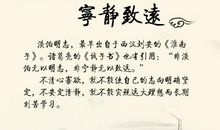 寧静致遠
淡泊明志，最早出自于西汉刘安的《淮南
子》。诸葛亮的《诫子书》也有引用：“非淡
泊无以明志，非宁静无以致远。”
不清心寡欲，就不能使自己的志向明确坚
定，不安定清静，就不能实现远大理想而长期
刻苦学习。